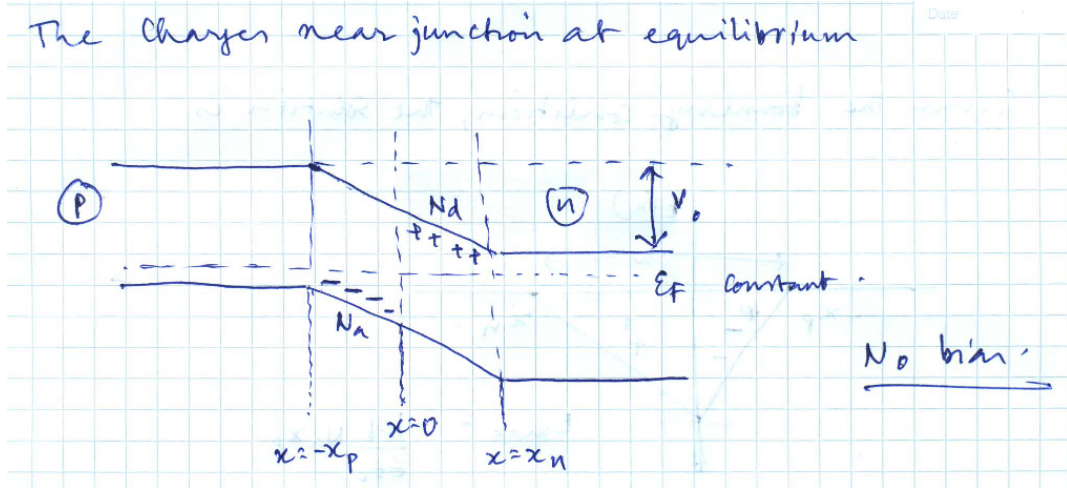 Date
The Charges near junction at equilibrium
P
Nd
n
V₀
+ + + +
EF constant.
− − − −
Na
No bias.
x=0
x=-xp
x=xn